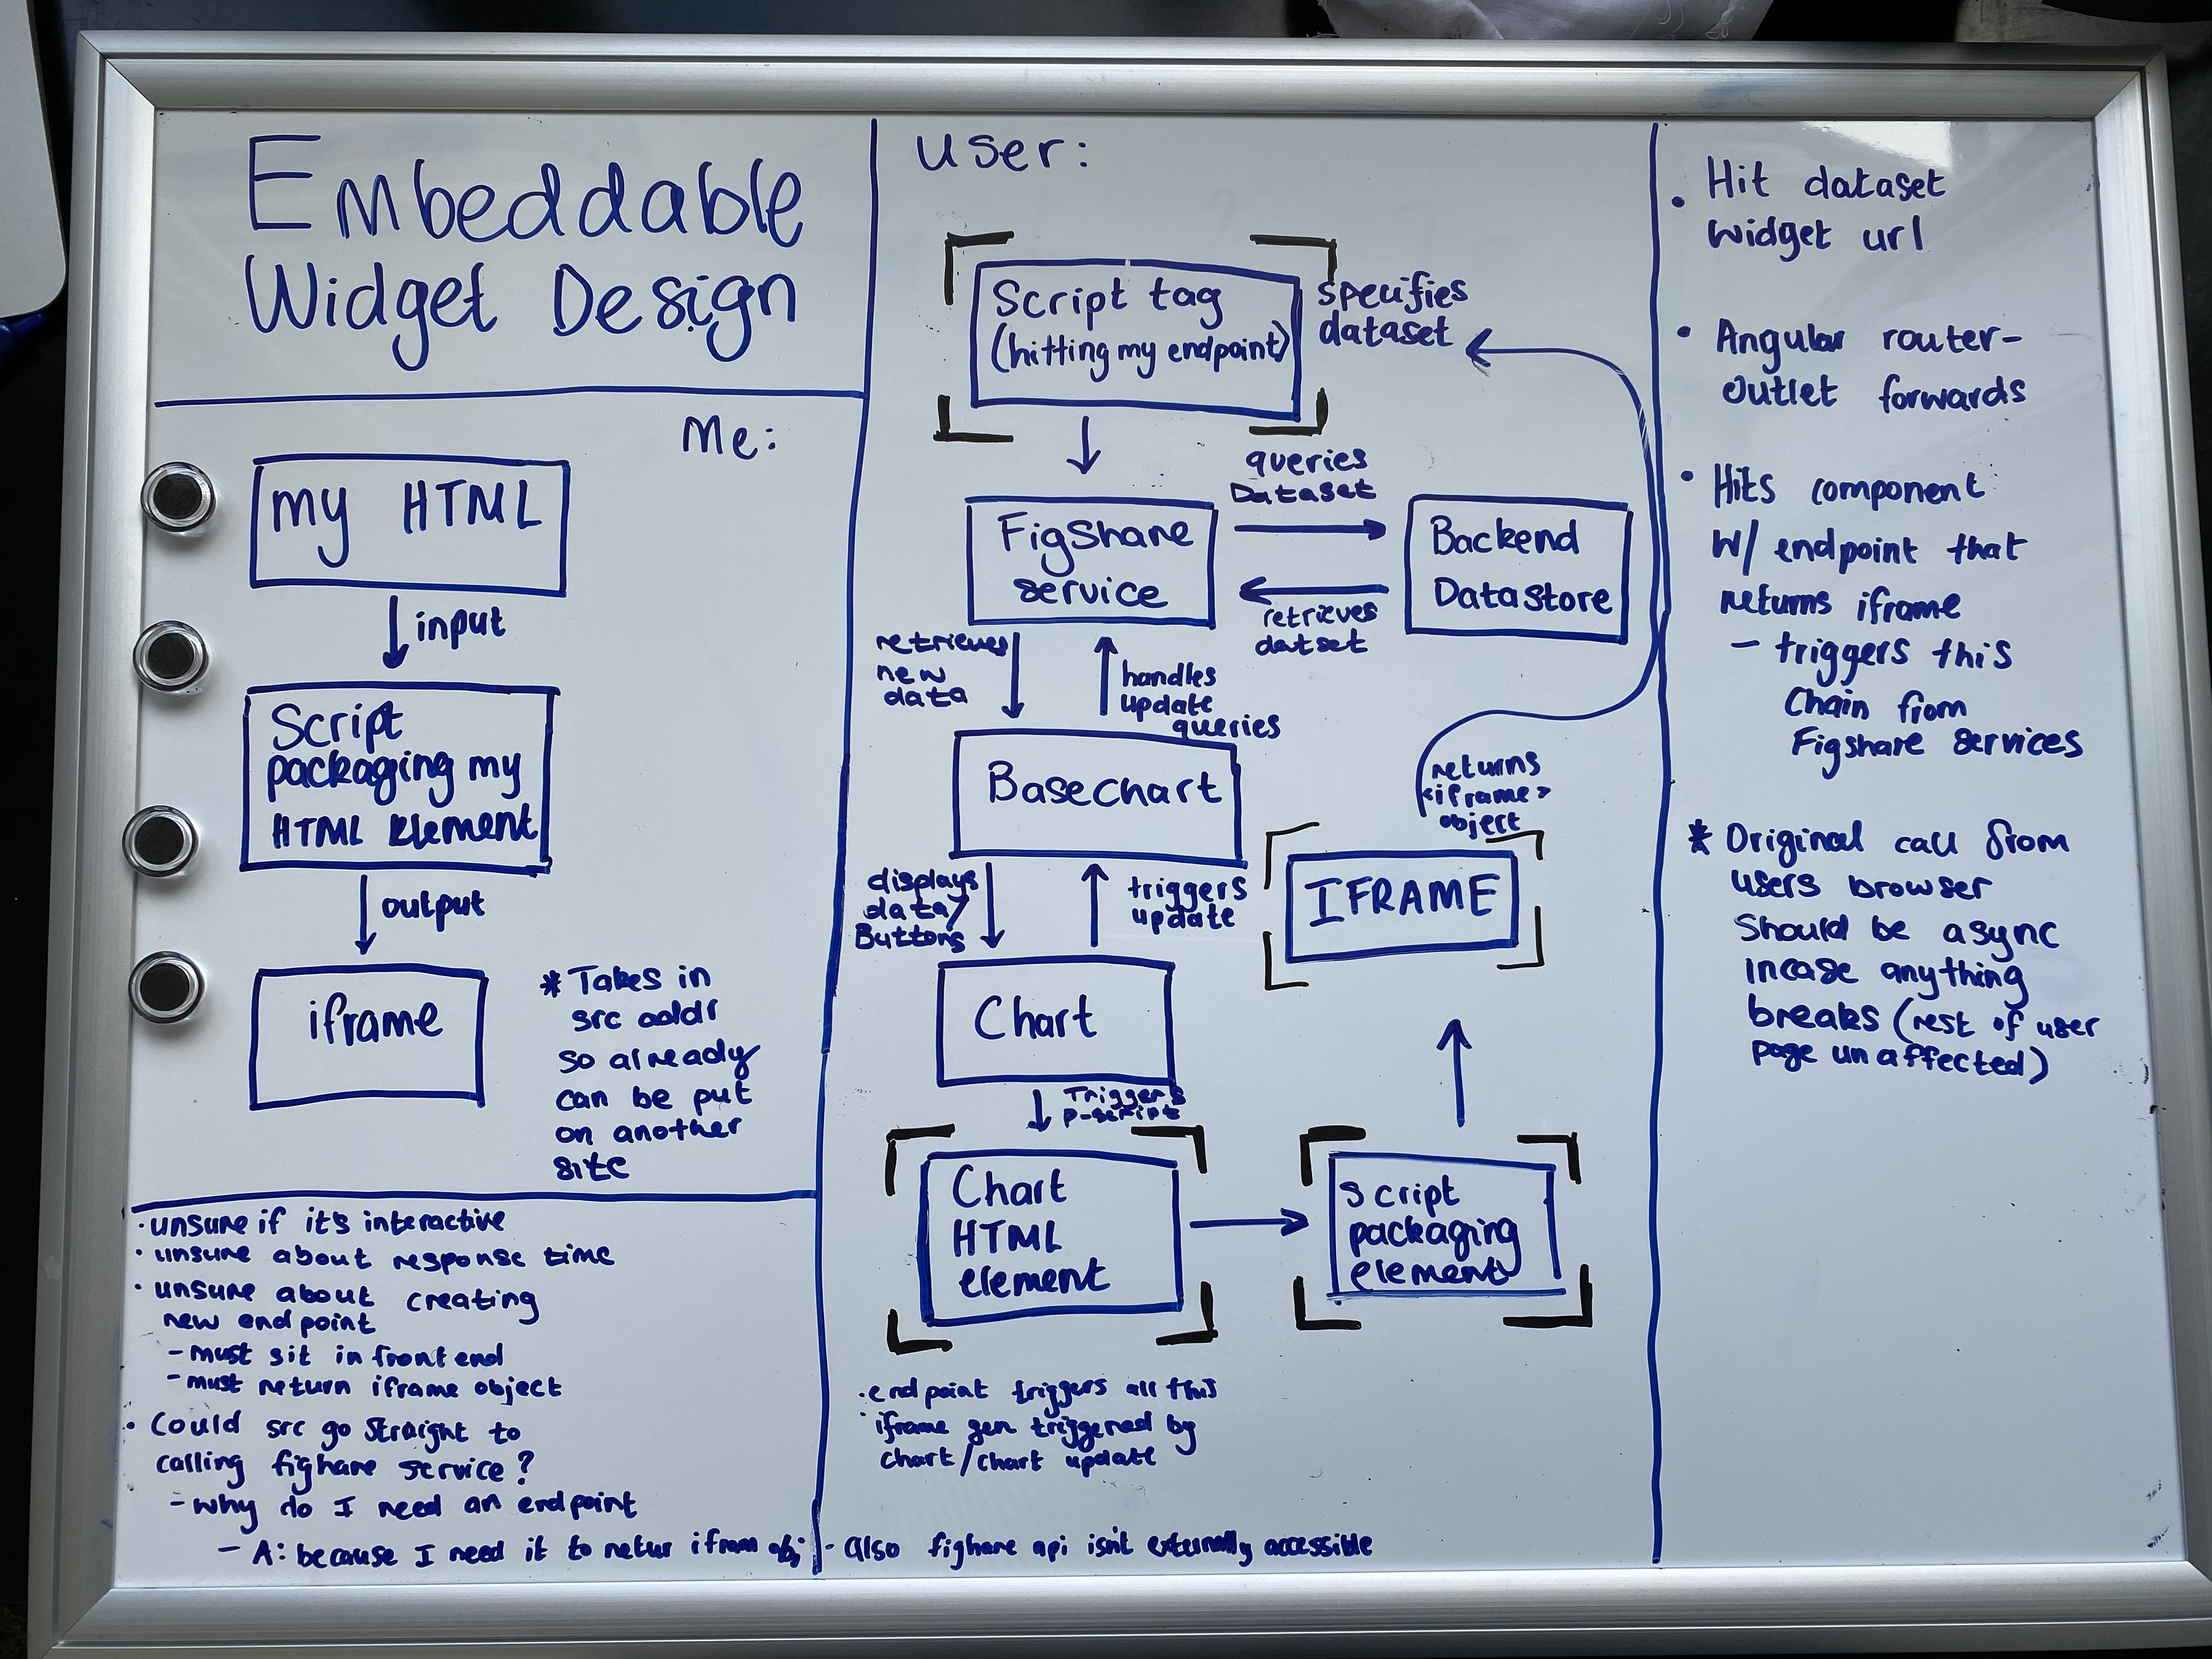 Embeddable
Widget Design
Me:
My HTML
input
Script
packaging my
HTML Element
output
iframe
*Takes in
src addr
so already
can be put
on another
site
· unsure if it's interactive
· unsure about response time
· unsure about creating
new endpoint
- must sit in frontend
- must return iframe object
· Could src go straight to
calling figshare service?
- Why do I need an endpoint
- A: because I need it to retur ifram obj
User:
Script tag
(hitting my endpoint)
specifies
dataset
queries
Dataset
FigShare
service
Backend
Datastore
retrieves
dataset
retrieves
new
data
handles
update
queries
Basechart
returns
<iframe>
object
displays
data/
Buttons
triggers
update
IFRAME
Chart
Triggers
p-script
Chart
HTML
element
Script
packaging
element
· endpoint triggers all this
· iframe gen triggered by
chart/chart update
- also figshare api isn't externally accessible
• Hit dataset
widget url
• Angular router-
outlet forwards
• Hits component
w/ endpoint that
returns iframe
- triggers this
Chain from
Figshare services
* Original call from
users browser
Should be async
incase anything
breaks (rest of user
page unaffected)